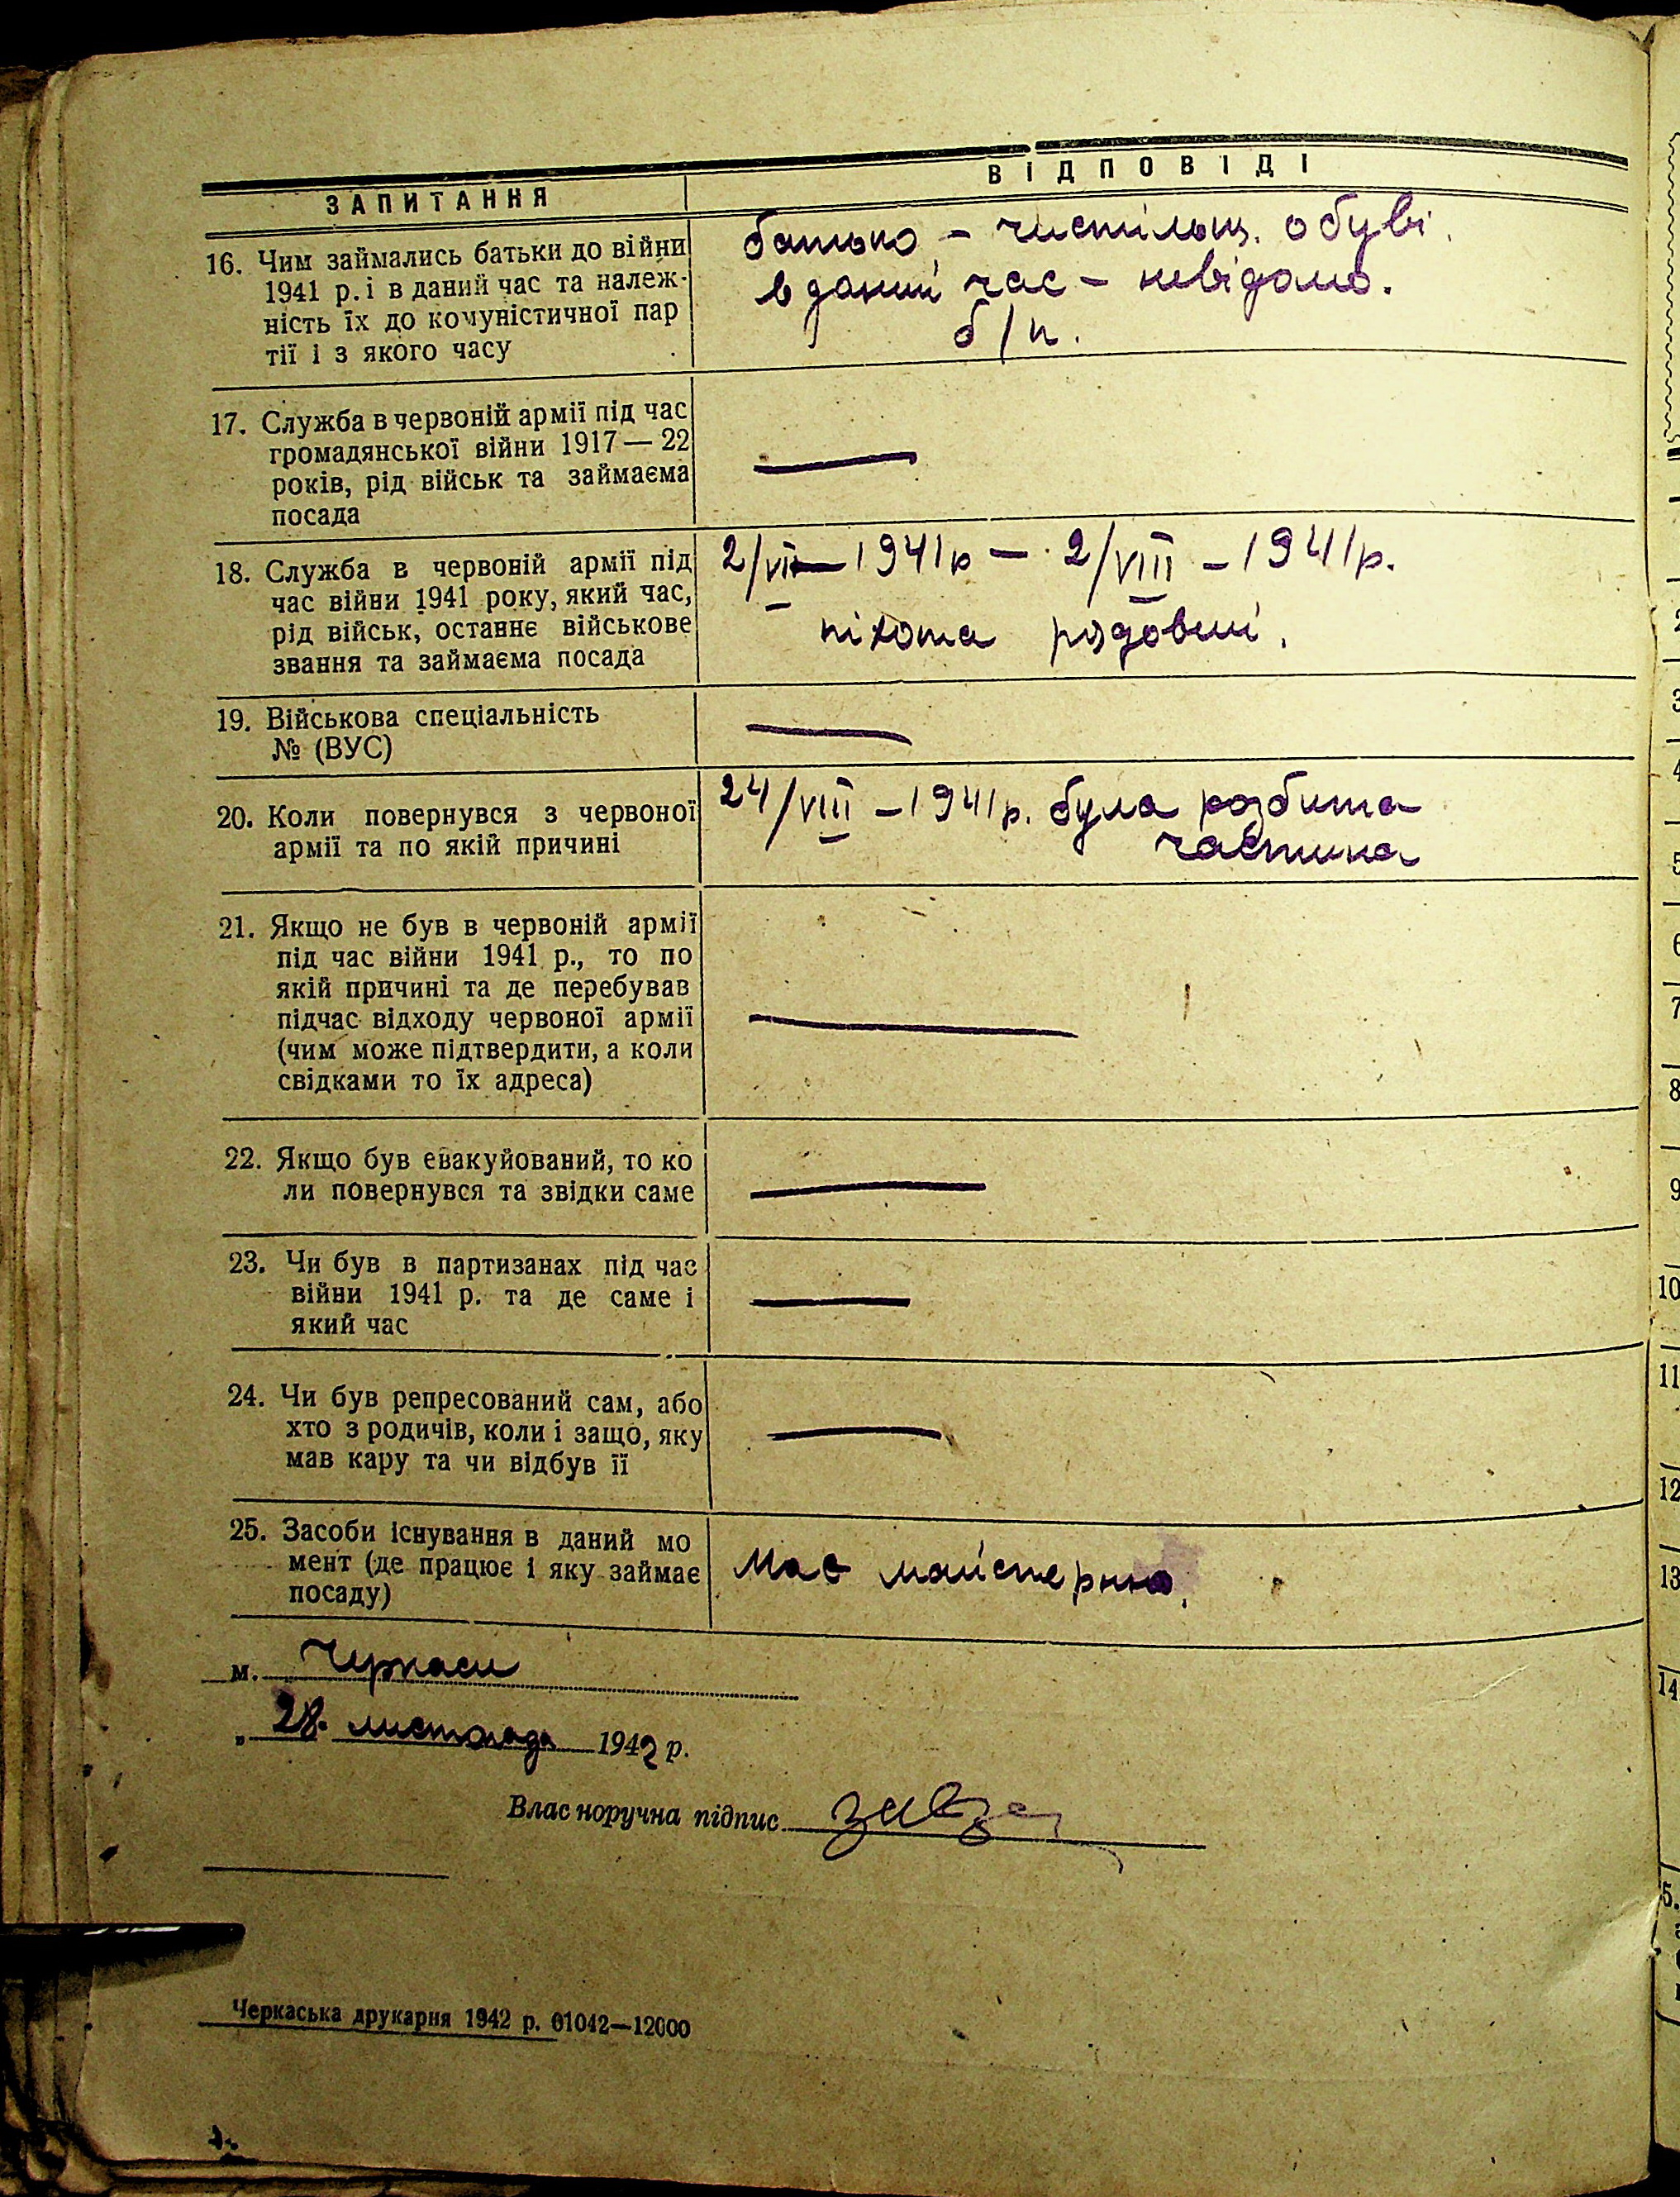 ЗАПИТАННЯ
ВІДПОВІДІ
16. Чим займались батьки до війни
1941 р. і в даний час та належ-
ність їх до комуністичної пар
тії і з якого часу
батько - чистільщ. обуві.
в даний час - невідомо.
б/п.
17. Служба в червоній армії під час
громадянської війни 1917 — 22
років, рід військ та займаєма
посада
—
18. Служба в червоній армії під
час війни 1941 року, який час,
рід військ, останнє військове
звання та займаєма посада
2/VII-1941р - 2/VIII - 1941р.
піхота рядовий.
19. Військова спеціальність
№ (ВУС)
—
20. Коли повернувся з червоної
армії та по якій причині
24/VIII - 1941р. була розбита
частина
21. Якщо не був в червоній армії
під час війни 1941 р., то по
якій причині та де перебував
підчас відходу червоної армії
(чим може підтвердити, а коли
свідками то їх адреса)
—
22. Якщо був евакуйований, то ко
ли повернувся та звідки саме
—
23. Чи був в партизанах під час
війни 1941 р. та де саме і
який час
—
24. Чи був репресований сам, або
хто з родичів, коли і защо, яку
мав кару та чи відбув її
—
25. Засоби існування в даний мо
мент (де працює і яку займає
посаду)
Має майстерню.
м. Черкаси
„28. листопада 1942 р.
Власноручна підпис
Черкаська друкарня 1942 р. 01042—12000
3
4
5
6
7
8
9
10
11
12
13
14
5.